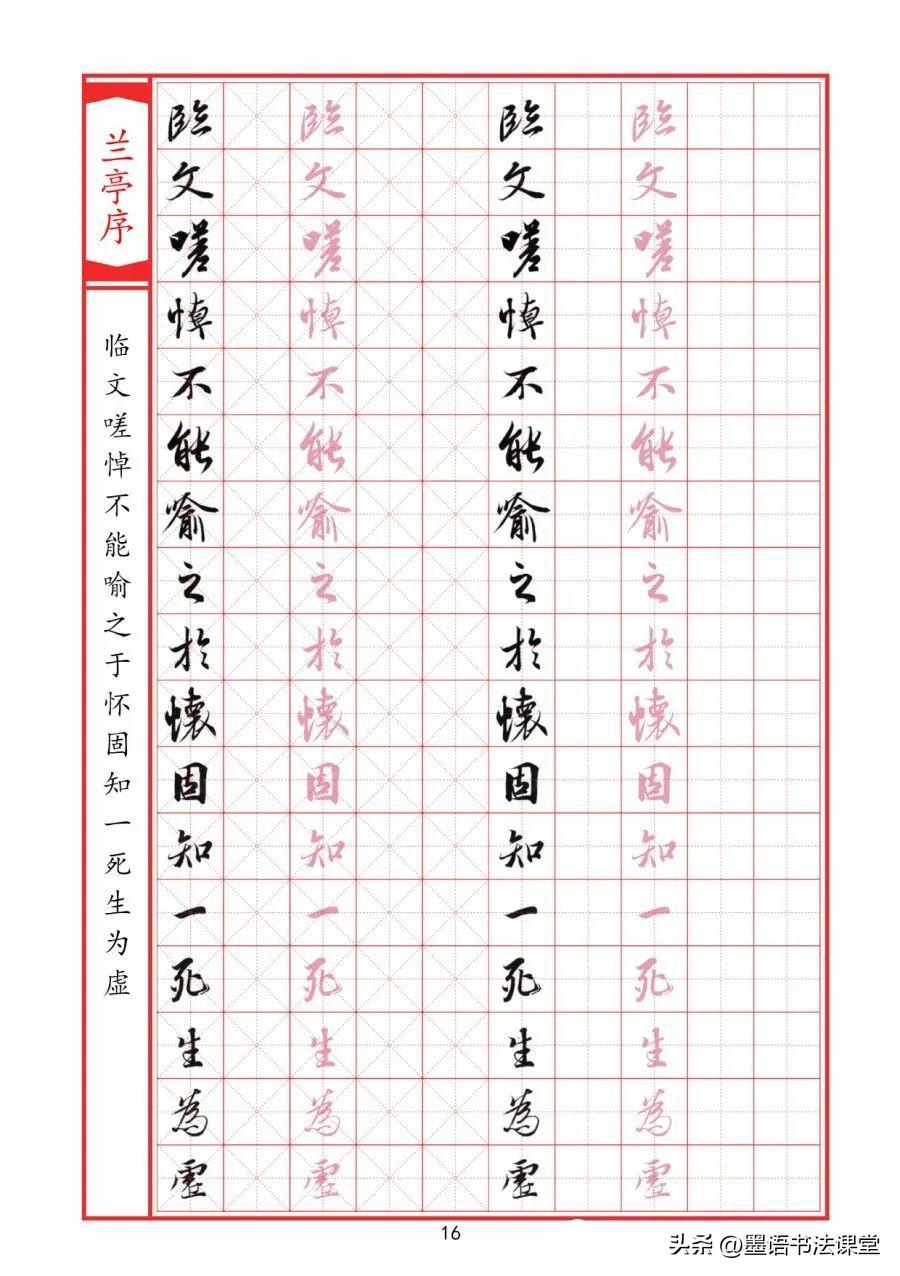 兰亭序
临文嗟悼不能喻之于怀固知一死生为虚
臨 臨 臨 臨
文 文 文 文
嗟 嗟 嗟 嗟
悼 悼 悼 悼
不 不 不 不
能 能 能 能
喻 喻 喻 喻
之 之 之 之
於 於 於 於
懷 懷 懷 懷
固 固 固 固
知 知 知 知
一 一 一 一
死 死 死 死
生 生 生 生
為 為 為 為
虛 虛 虛 虛
16
头条 @墨语书法课堂